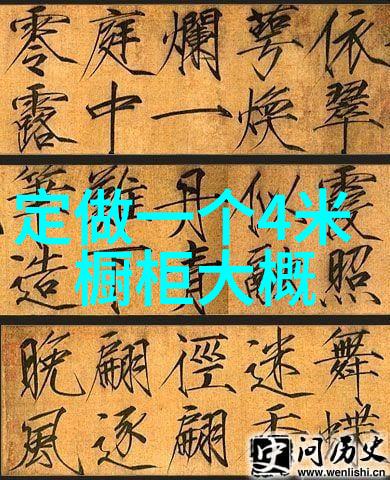 依翠
萼煥
爛一
庭中
零露
霞照
似融
丹青
難
筆造
舞蝶
迷香
徑翩
翩逐
晚風
定做一个4米
橱柜大概
问历史
www.wenlishi.cn